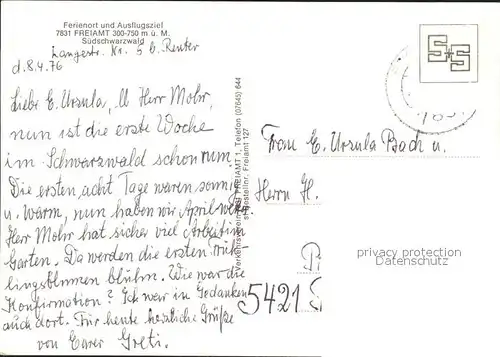 Ferienort und Ausflugsziel
7831 FREIAMT 300-750 m ü. M.
Südschwarzwald
Langestr. Nr. 5 b. Reuter
d. 8.4.76
Liebe E. Ursula, U Herr Mohr,
nun ist die erste Woche
im Schwarzwald schon rum
Die ersten acht Tage waren sonnig
u. warm, nun haben wir April wetter.
Herr Mohr hat sicher viel Arbeit im
Garten. Da werden die ersten Früh
lingsblumen blühn. Wie war die
Konfirmation? Ich war in Gedanken
auch dort. Für heute herzliche Grüße
von Eurer Greti.
FREIAMT 1, Telefon (07645) 644
Freiamt 127
SS
Frau E. Ursula Bach u.
Herrn H.
privacy protection
Datenschutz
5421